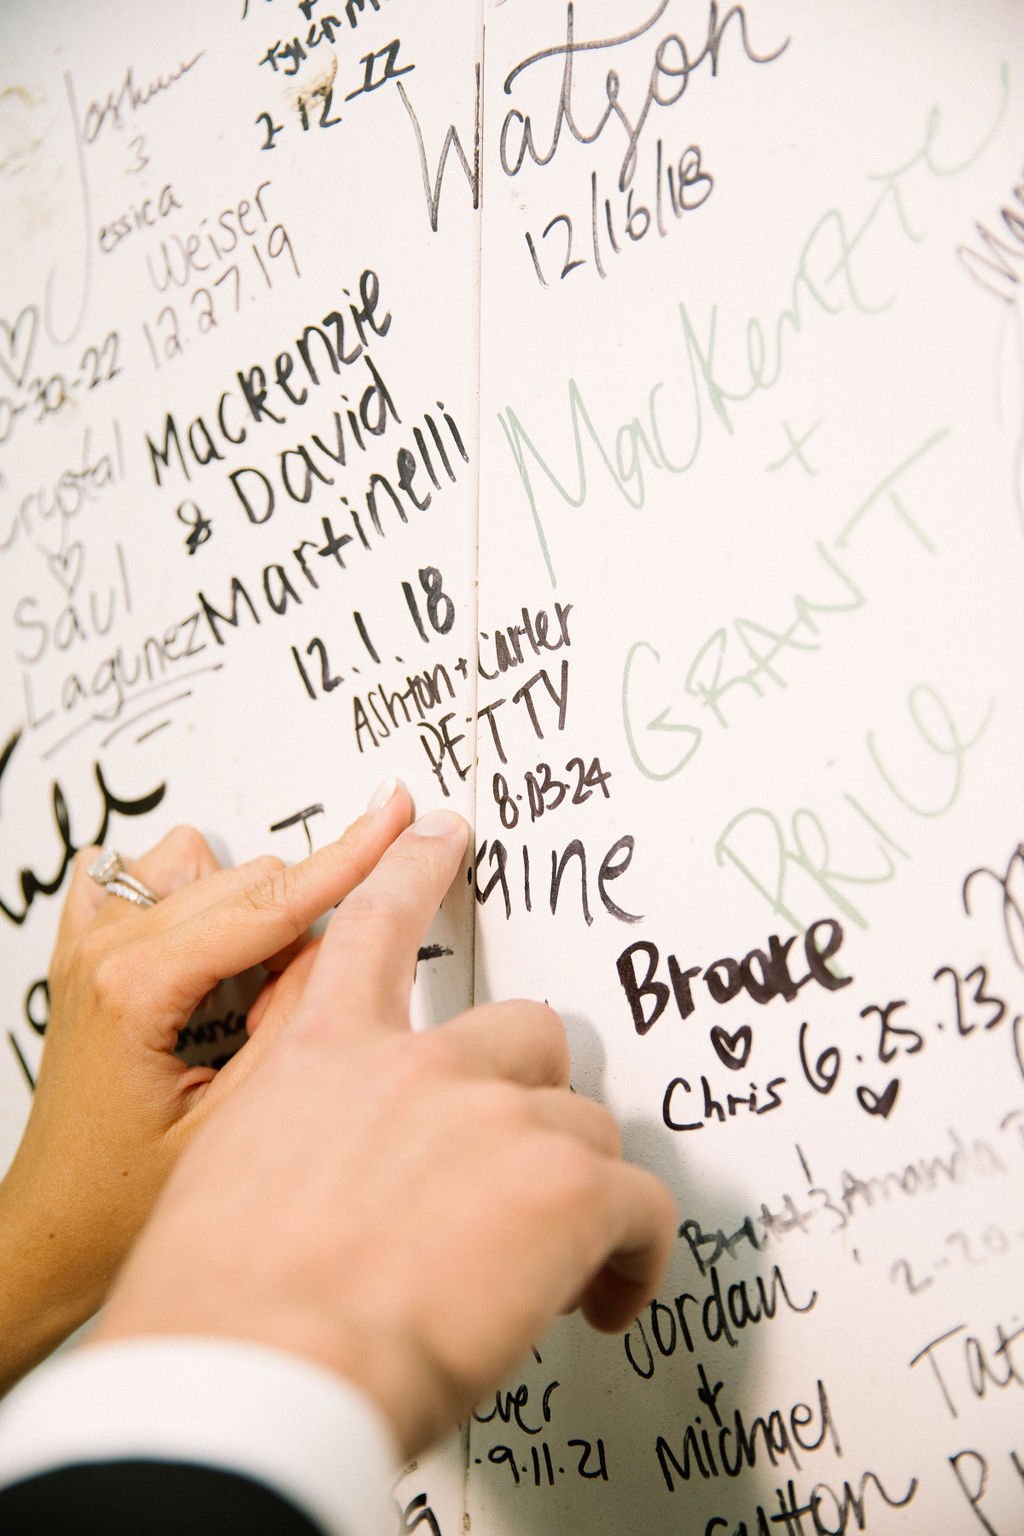 Tyler
2-12-22
Joshua
3
Jessica
Weiser
12.27.19
Watson
12/16/18
Mackenzie
& David
Martinelli
12.1.18
-30-22
Crystal
Saul
Lagunez
Mackenzie
+
GRANT
PRICE
Ashton + Carter
PETTY
8.03.24
aine
Brooke
Chris 6.25.23
Brett & Amanda
2-20-
Jordan
&
Michael
utton
Tati
ever
.9.11.21